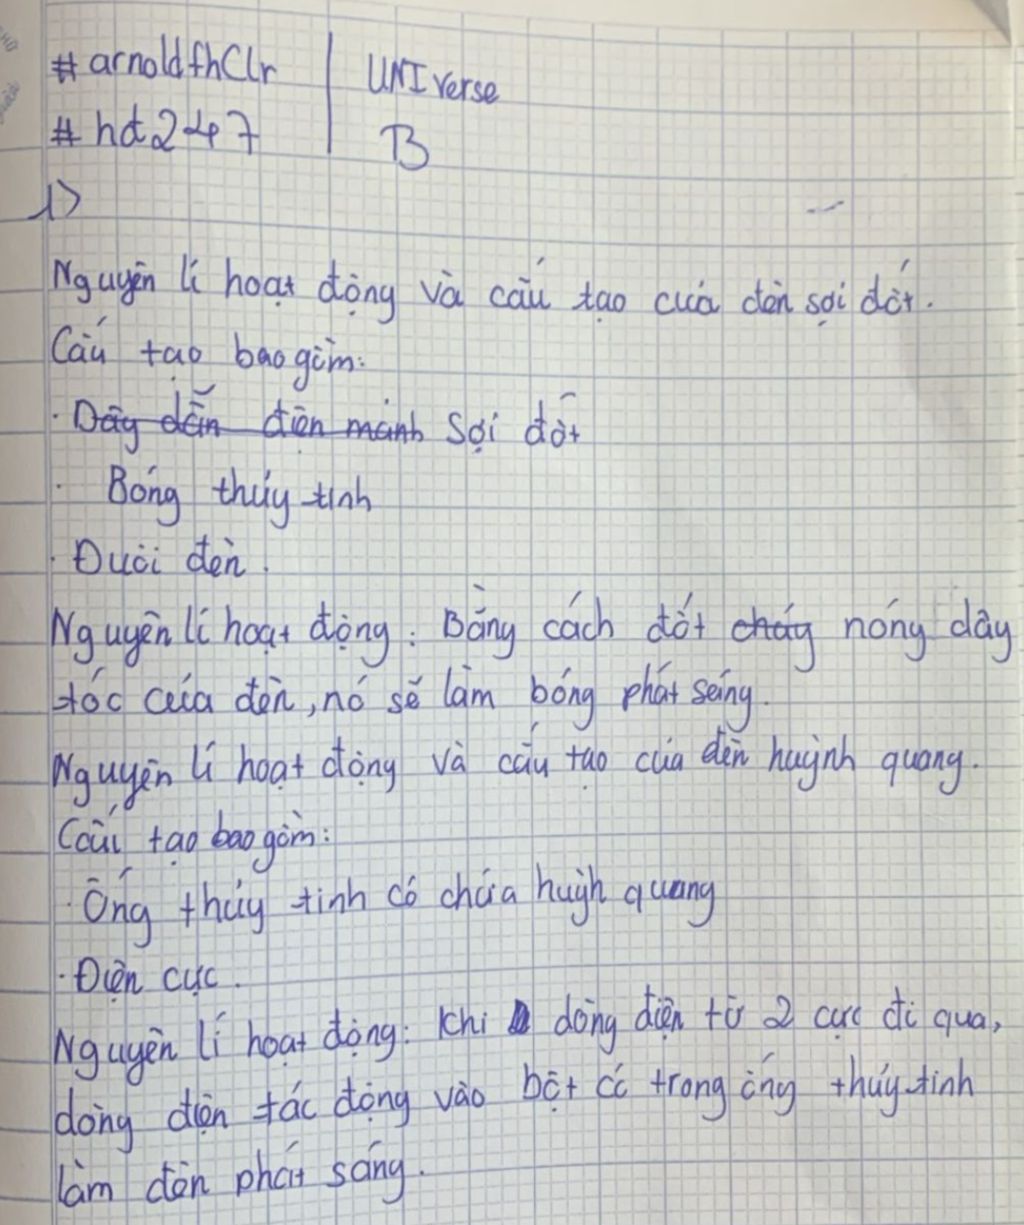 #arnoldfhClr | UNIverse
#hđ247 | B
1>
Nguyên lí hoạt động và cấu tạo của đèn sợi đốt.
Cấu tạo bao gồm:
. Dây dẫn điện mảnh Sợi đốt
. Bóng thủy tinh
. Đuôi đèn.
Nguyên lí hoạt động: Bằng cách đốt cháy nóng dây
tóc của đèn, nó sẽ làm bóng phát sáng.
Nguyên lí hoạt động và cấu tạo của đèn huỳnh quang.
Cấu tạo bao gồm:
. Ống thủy tinh có chứa huỳh quang
. Điện cực.
Nguyên lí hoạt động: Khi dòng điện từ 2 cực đi qua,
dòng điện tác động vào bột có trong ống thủy tinh
làm đèn phát sáng.